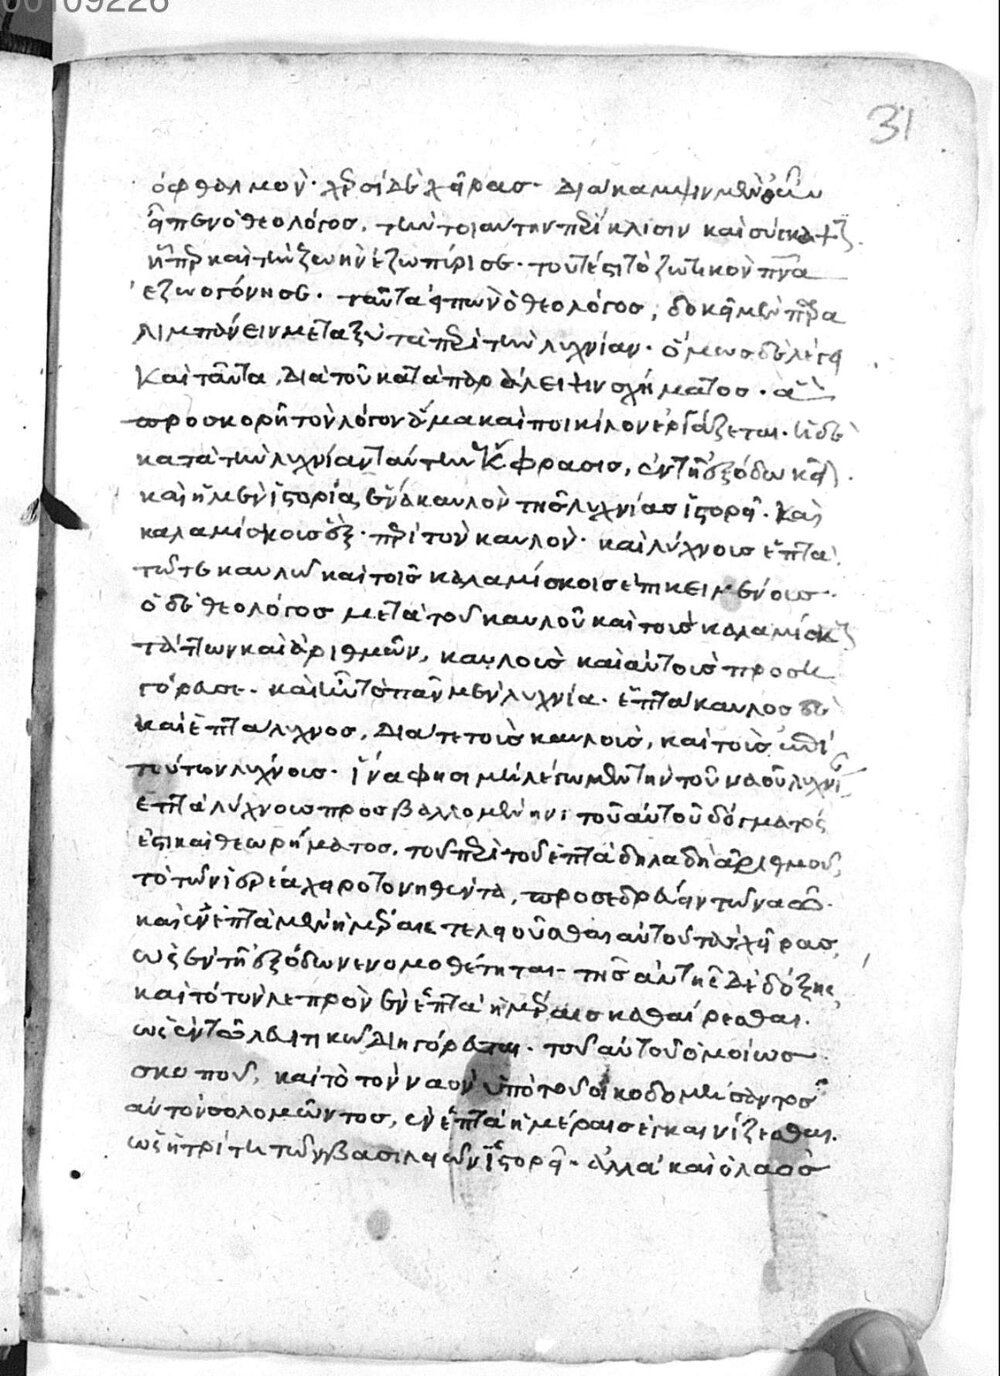 00109226
31
ὀφθαλμοὺς. χερσὶ δὲ χεῖρας. διακαμψιν μὲν οὖν
εἶπεν ὁ θεολόγος, τὴν τοιαύτην περίκλισιν καὶ
ἥπερ καὶ τὴν ζωὴν ἐζωπύρισε. τουτέστι τὸ ζωτικὸν πνα
ἐζωογόνησε. ταῦτα εἰπὼν ὁ θεολόγος, δοκεῖ μὲν
μεταξὺ τὰ περὶ τὴν λυχνίαν. ὅμως δὲ λέγει
καὶ ταῦτα, διὰ τοῦ κατὰ παράλειψιν σχήματος.
προσκορῆ τὸν λόγον ἅμα καὶ ποικίλον ἐργάζεται. ἡ δὲ
κατὰ τὴν λυχνίαν ταύτην ἔκφρασις, ἐν τῇ ἐξόδω
καὶ ἡ μὲν ἱστορία ἕνα καυλὸν τῆς λυχνίας ἱστορεῖ. καὶ
καλαμίσκοις ἓξ. περὶ τὸν καυλὸν. καὶ λύχνοις ἑπτὰ
τῶ τε καυλῶ καὶ τοῖς καλαμίσκοις ἐπικειμένοις.
ὁ δὲ θεολόγος μετὰ τοῦ καυλοῦ καὶ τοὺς καλαμίσκ
τάττων καὶ ἀριθμῶν, καυλοὺς καὶ αὐτοὺς προση
γόρευσε. καὶ λυχνία. ἑπτάκαυλος δὲ
καὶ ἑπτάλυχνος, διά τε τοὺς καυλοὺς, καὶ τοὺς ἐπὶ
τούτων λύχνους. ἵνα φησι μὴ λέγωμεν τὴν τοῦ ναοῦ λυχνί
ἑπτὰ λύχνοις προσβαλλομένην. τοῦ αὐτοῦ δόγματός
ἐστι καὶ θεωρήματος, τοῦ περὶ τοῦ ἑπτὰ δηλαδὴ ἀριθμοῦ,
τὸ τῶν ἱερέα χειροτονηθέντα, προσεδρεύειν τῶ ναῶ.
καὶ ἐν ἑπτὰ μὲν ἡμέραις τελειοῦσθαι αὐτοῦ τὰς χεῖρας,
ὡς ἐν τῇ ἐξόδω νενομοθέτηται. τῆς αὐτῆς δὲ δόξης
καὶ τὸ τὸν λεπρὸν ἐν ἑπτὰ ἡμέραις καθαίρεσθαι.
ὡς ἐν τῶ λευιτικῶ διηγόρευται. τοῦ αὐτοῦ ὁμοίως
σκοποῦ, καὶ τὸ τὸν ναὸν ὑπὸ τοῦ οἰκοδομήσαντος
αὐτὸν σολομῶντος, ἐν ἑπτὰ ἡμέραις ἐγκαινίζεσθαι.
ὡς ἡ τρίτη τῶν βασιλειῶν ἱστορεῖ. ἀλλὰ καὶ ὁ λαὸς